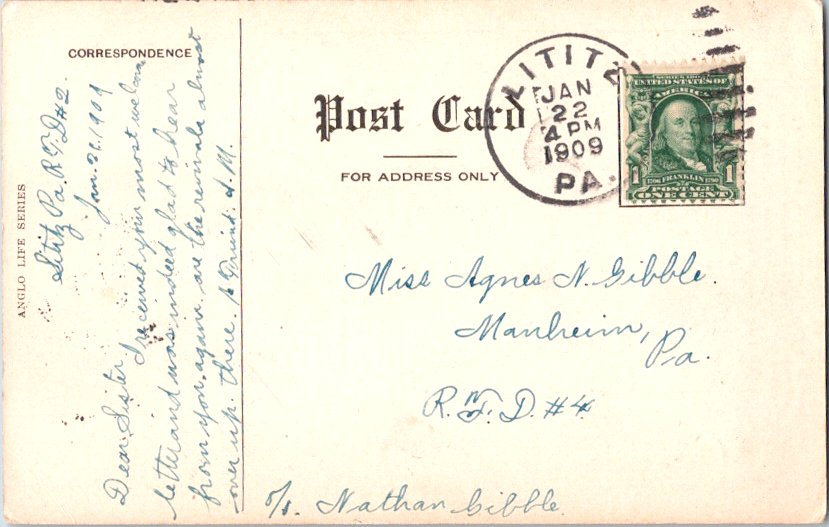 CORRESPONDENCE
ANGLO LIFE SERIES
Lititz Pa. R.F.D#2.
Jan. 21, 1909
Dear Sister
I received your most welcom
letter and was indeed glad to hear
from you again. are the revivals almost
over up there. fr Friend. A. M.
Post Card
FOR ADDRESS ONLY
LITITZ
JAN
22
4 PM
1909
PA.
SERIES 1902
UNITED STATES OF
AMERICA
1 1706 FRANKLIN 1790 1
POSTAGE
ONE CENT
Miss Agnes N. Gibble.
Manheim,
Pa.
R. F. D. #4
c/o. Nathan Gibble.